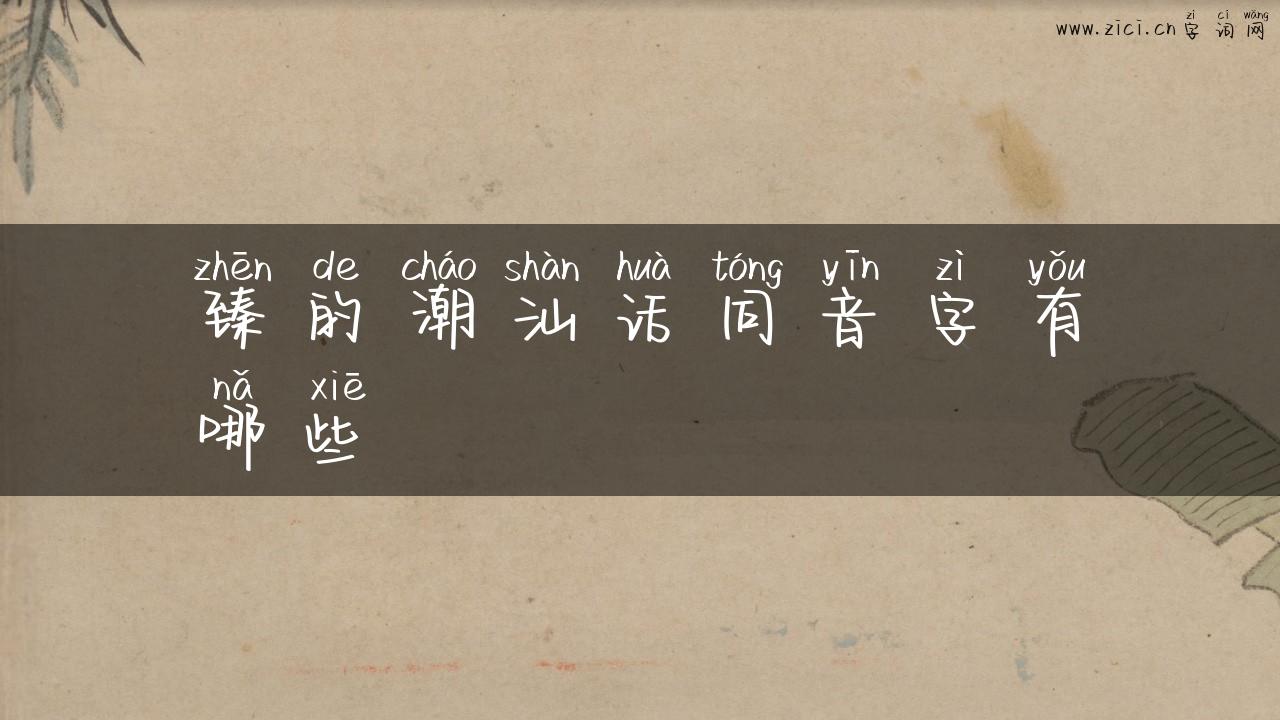 zì cí wǎng
www.zici.cn 字词网
zhēn de cháo shàn huà tóng yīn zì yǒu
臻的潮汕话同音字有
nǎ xiē
哪些